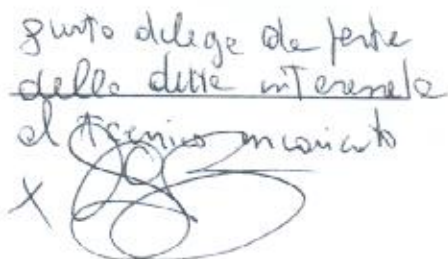 giusto delega da parte
della ditta interessata
al tecnico incaricato
X